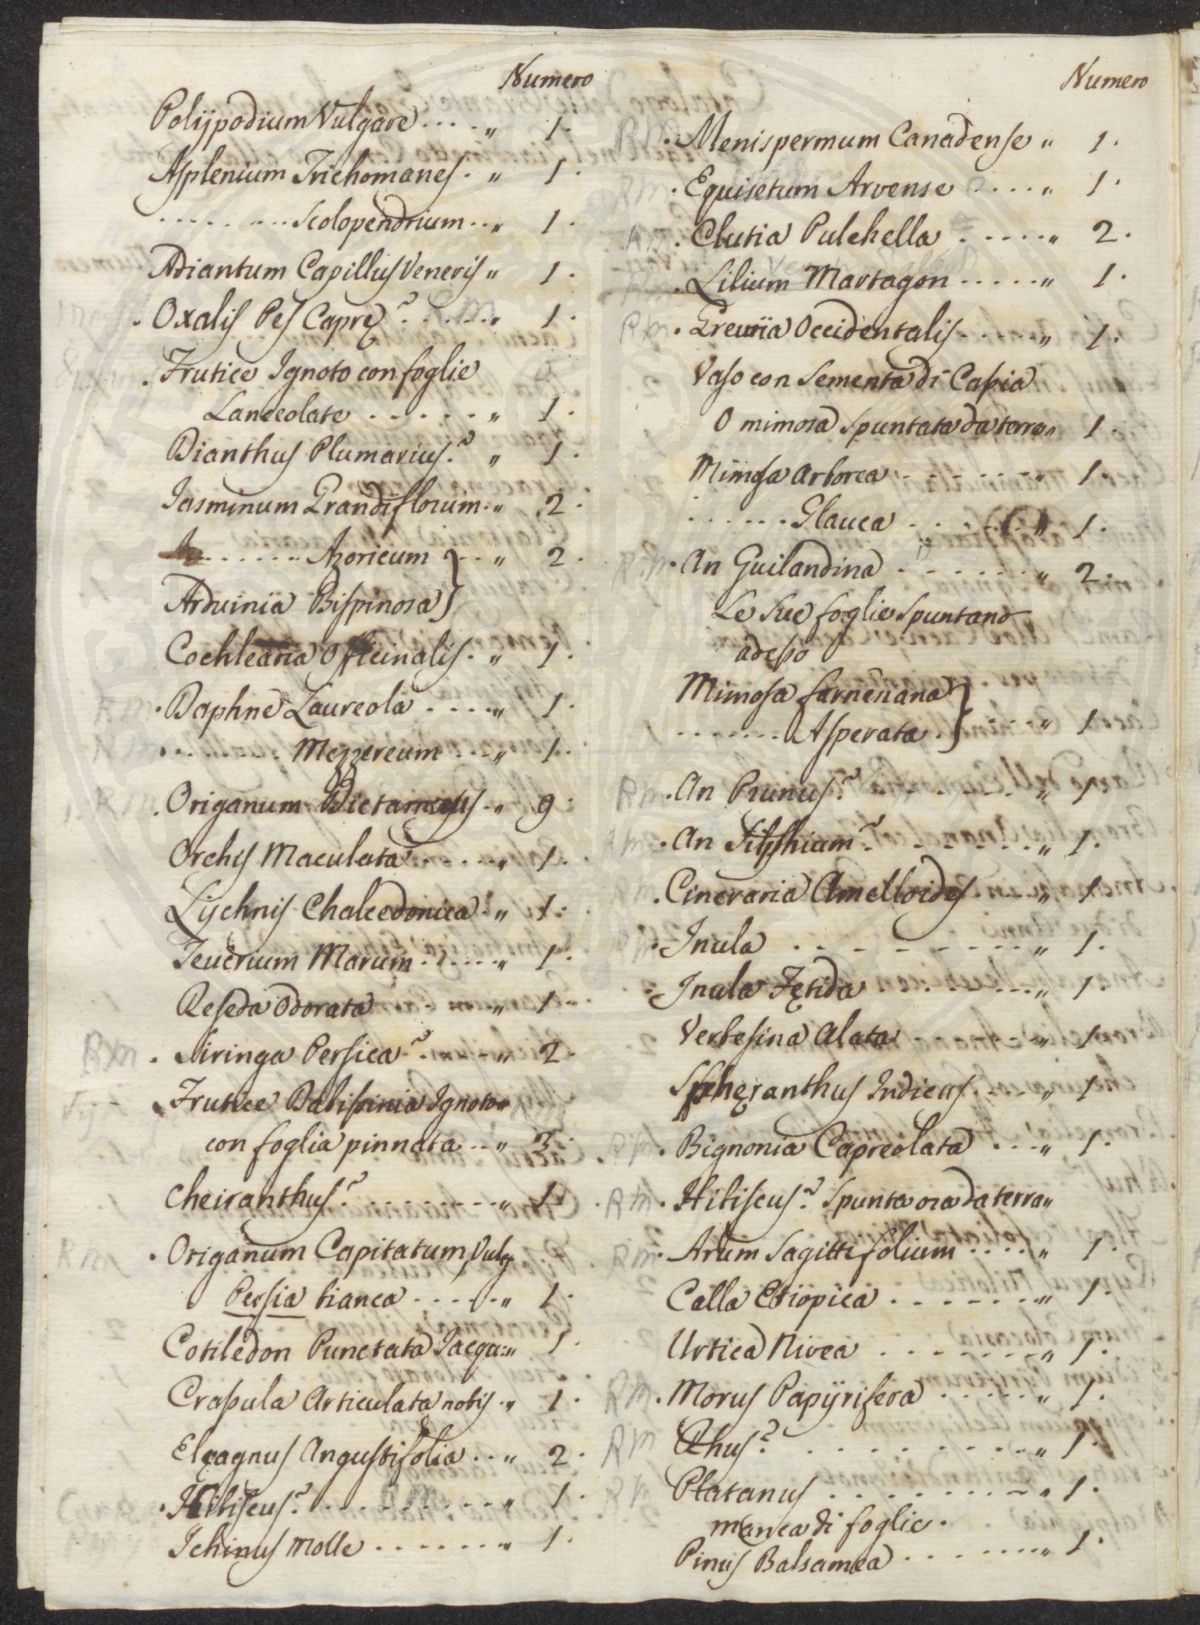 Numero
Polijpodium Vulgare . . . . „ 1.
Asplenium Trichomanes . „ 1.
. . . . . . . . Scolopendrium . . „ 1.
Adiantum Capillus Veneris „ 1.
. Oxalis Pes Capręę? . . . . . „ 1.
. Frutice Ignoto con foglie
Lanceolate . . . . . . „ 1.
Dianthus Plumarius? „ 1.
Jasminum Grandiflorum . „ 2.
. . . . . . . . Azoricum } . . „ 2.
Arduinia Bispinosa }
Cochlearia Officinalis . „ 1.
Rm . Daphne Laureola . . . . . „ 1.
. . . . . . . Mezzereum . . „ 1.
. Origanum Dictamnus . „ 9.
Orchis Maculata . . . . „ 1.
Lychnis Chalcedonica . „ 1.
Teucrium Marum . . . . . „ 1.
Reseda Odorata . . . „ 1.
Rm . Siringa Persica? . . „ 2.
. Frutice Ignoto
con foglia pinnata . . „ 3.
Cheiranthus? . . . . . . „ 1.
Rm . Origanum Capitatum, Vulg.
Persia bianca . . . . . „ 1.
Cotiledon Punctata Jacqu: „ 1.
Crassula Articulata nobis . „ 1.
Elęagnus Angustifolia . . „ 2.
. Hibiscus? . . . Rm . . . „ 1.
Schinus Molle . . . . . . . „ 1.
Numero
Rm . Menispermum Canadense „ 1.
Rm . Equisetum Arvense . . . . „ 1.
Rm . Clutia Pulchella . . . . . „ 2.
. Lilium Martagon . . . . . „ 1.
Rm . Grewia Occidentalis . . . . „ 1.
Vaso con Sementa di Cassia
O mimosa Spuntata da terra „ 1.
Mimosa Arborea . . . . . . „ 1.
. . . . . . . Glauca . . . . . . „ 1.
Rm . An Guilandina . . . . . . „ 2.
Le Sue foglie Spuntano
adesso
Mimosa farnesiana }
. . . . . . . Asperata } „ 1.
Rm . An Prunus? . . . . . . „ 1.
. An Silphium? . . . . . . „ 1.
. Cineraria Amelloides . . „ 1.
. Inula . . . . . . . . . „ 1.
. Inula Fętida . . . . . „ 1.
Verbesina Alata . . . . „ 1.
Sphęranthus Indicus . . . „ 1.
Rm . Bignonia Capreolata . . . „ 1.
Rm . Hibiscus? Spunta ora da terra „
Rm . Arum Sagittifolium . . . . „ 1.
Calla Etiopica . . . . . . . „ 1.
Urtica Nivea . . . . . . . „ 1.
Rm . Morus Papÿrifera . . . . . „ 1.
Rm Rhus? . . . . . . . . . . „ 1.
Rm Platanus . . . . . . . . . „ 1.
manca di foglie.
Pinus Balsamea . . . . . . . „ 1.